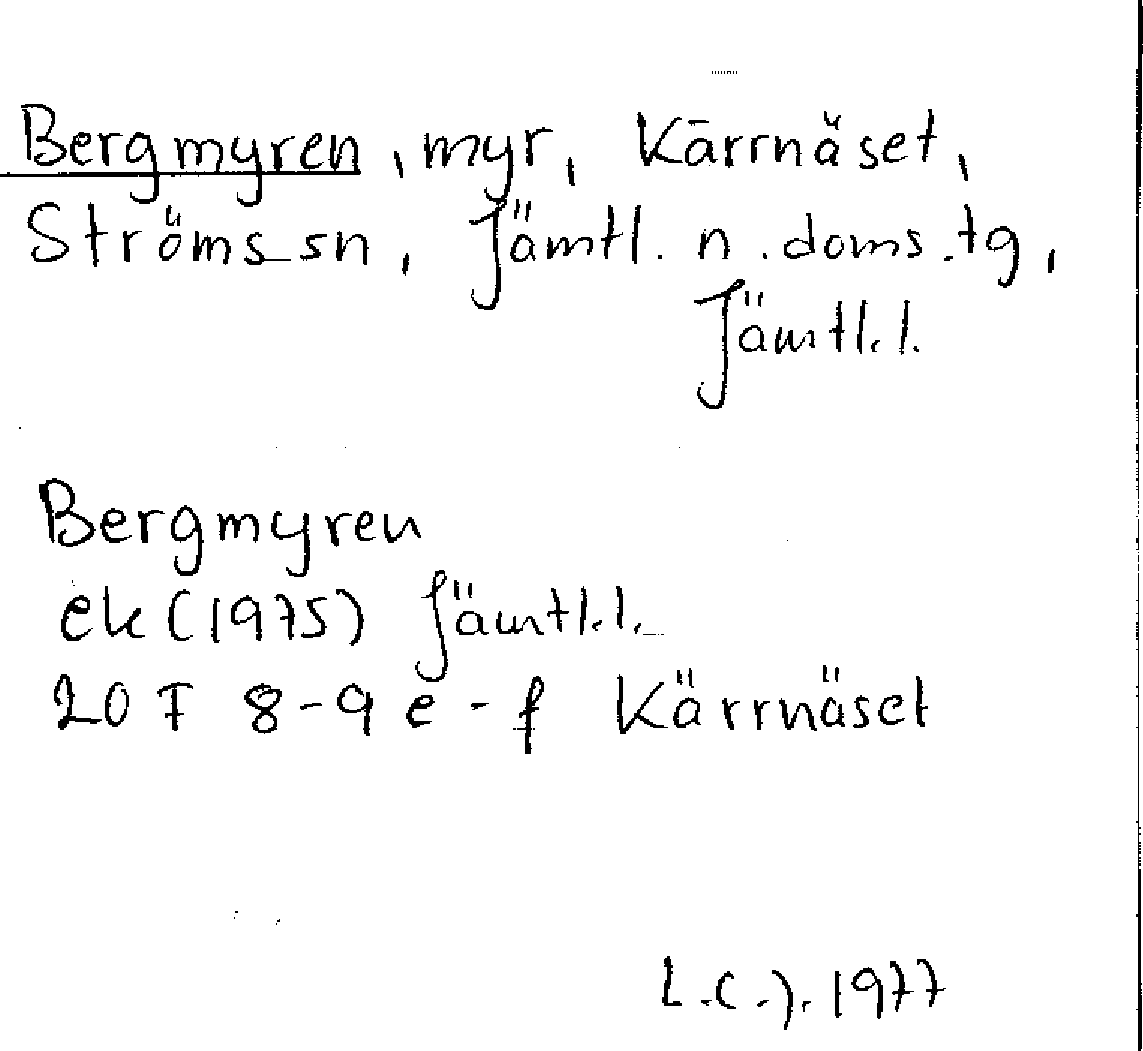 Bergmyren, myr, Kärrnäset,
Ströms sn, Jämtl. n. doms.tg,
Jämtl.l.
Bergmyren
ek (1975) Jämtl.l.
20 F 8-9 e-f Kärrnäset
L.C.J. 1977